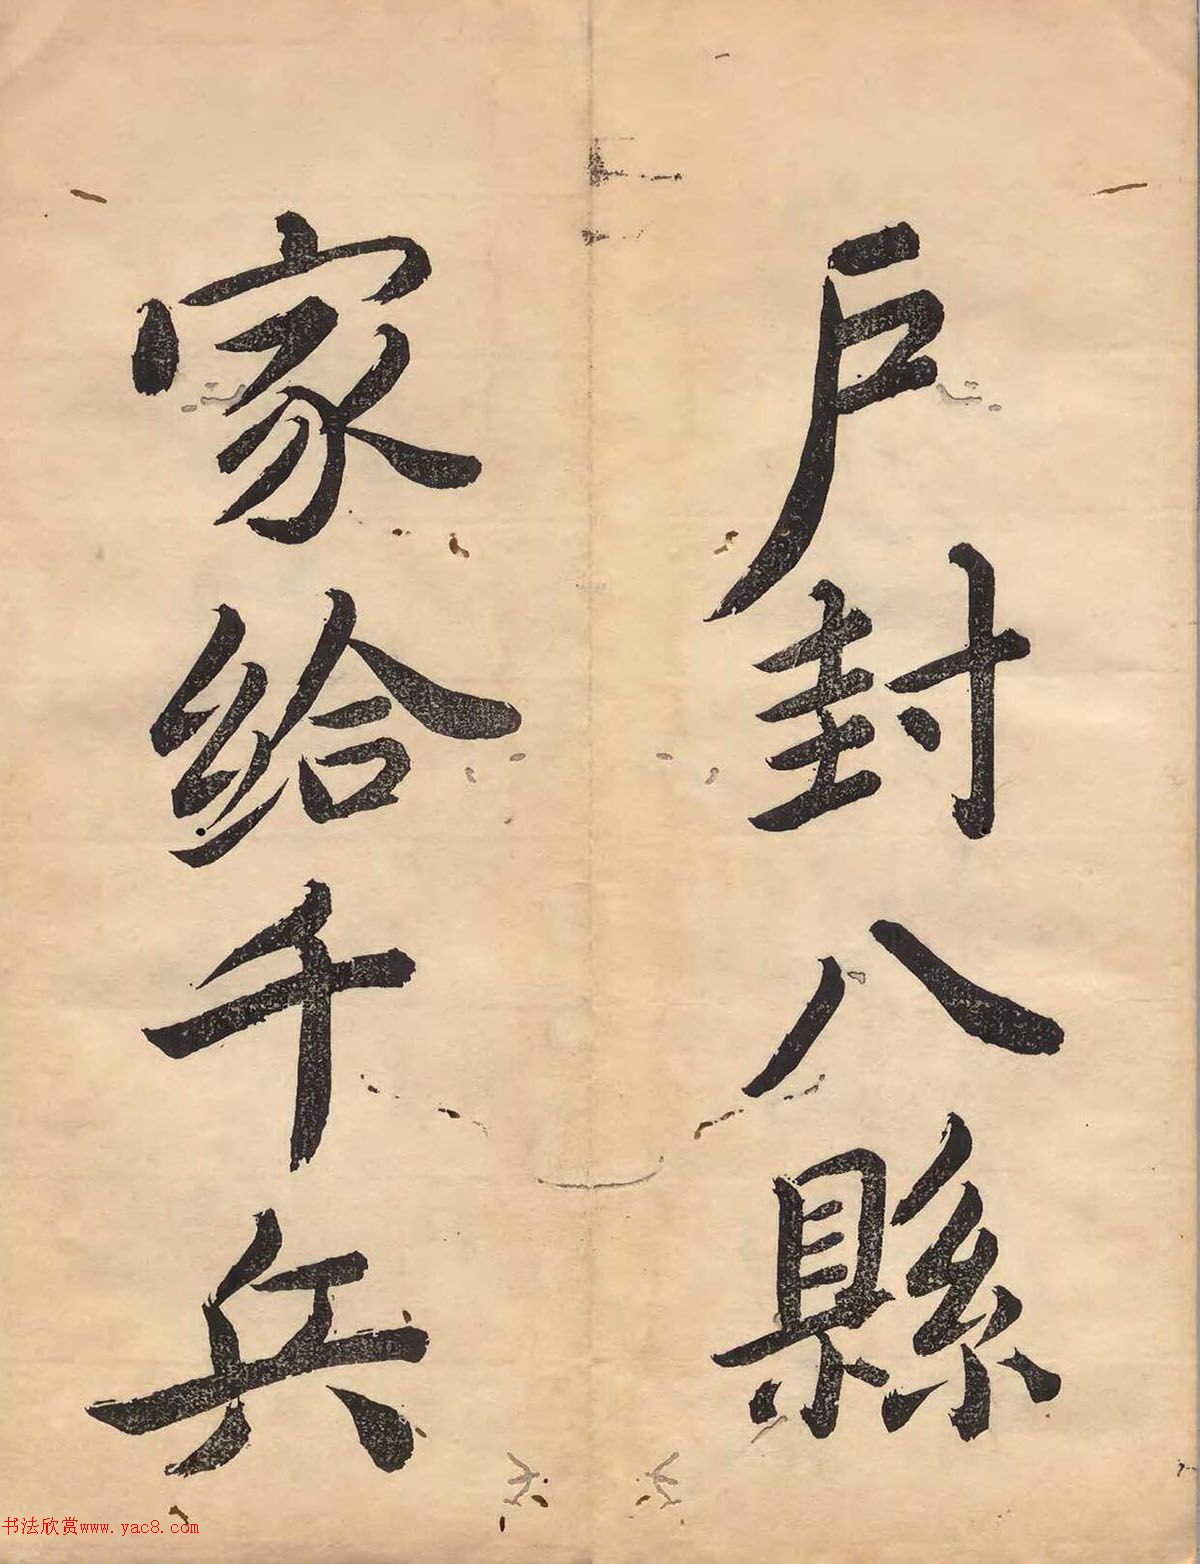 戶封八縣
家給千兵
书法欣赏www.yac8.com